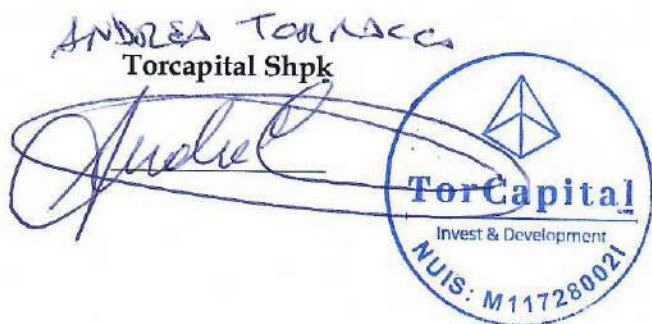 ANDREA TORRACCA
Torcapital Shpk
TorCapital
Invest & Development
NUIS: M11728002I